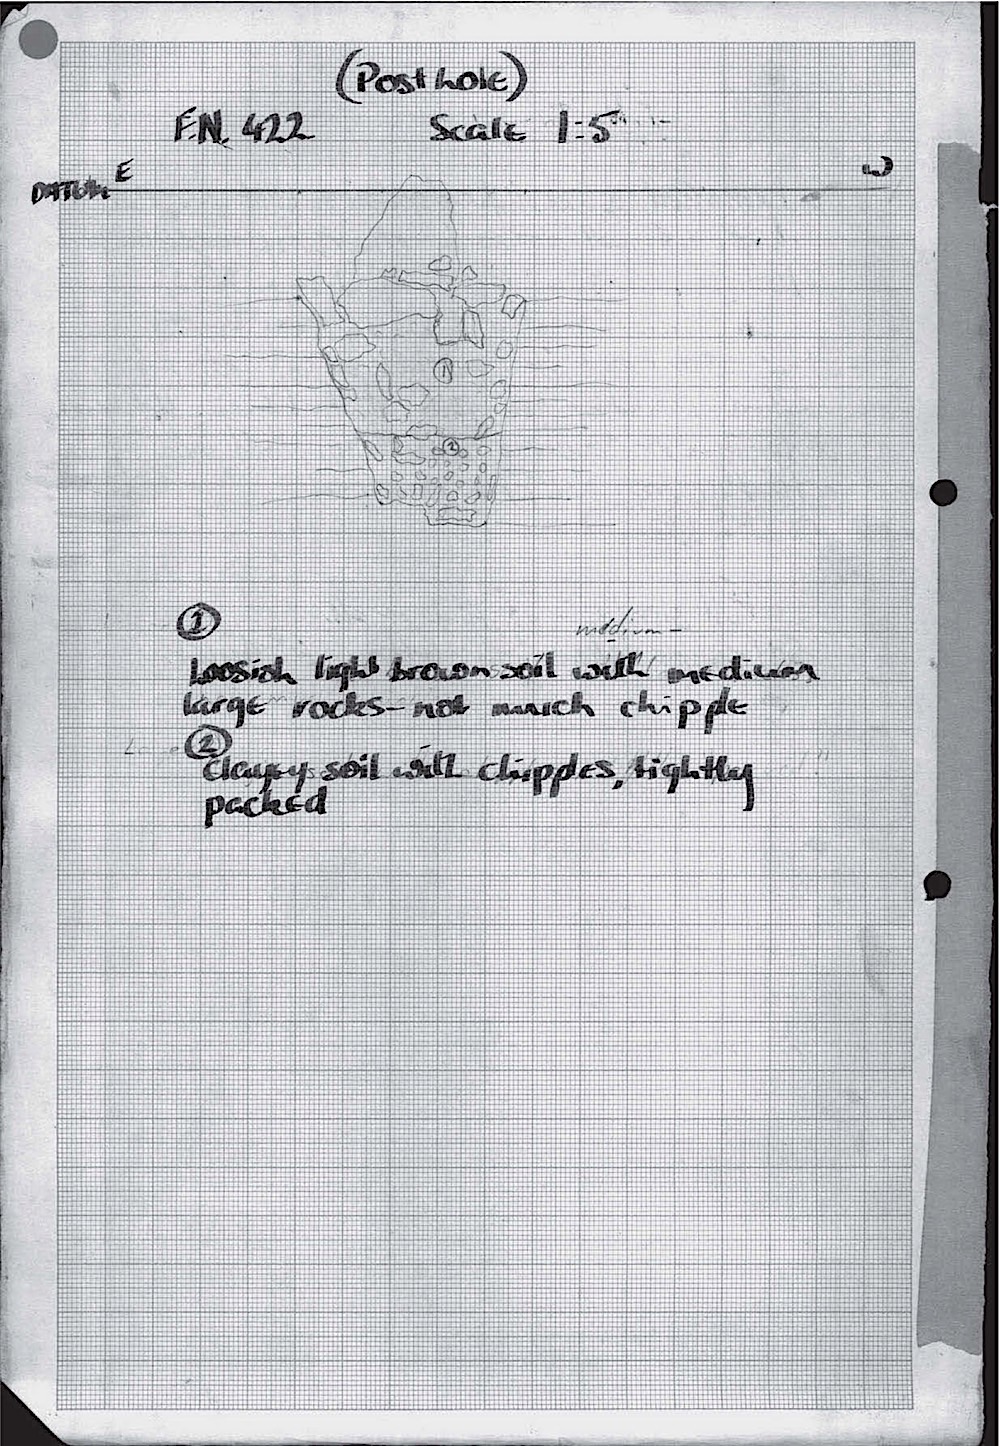 (Post hole)
F.N. 422 Scale 1:5
DATUM E W
1
2
1
medium -
Loosish light brown soil with medium
large rocks - not much chipple
2
Clayey soil with chipples, tightly
packed